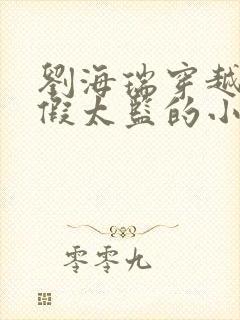 劉海瑞穿越
假太監的小
零零九